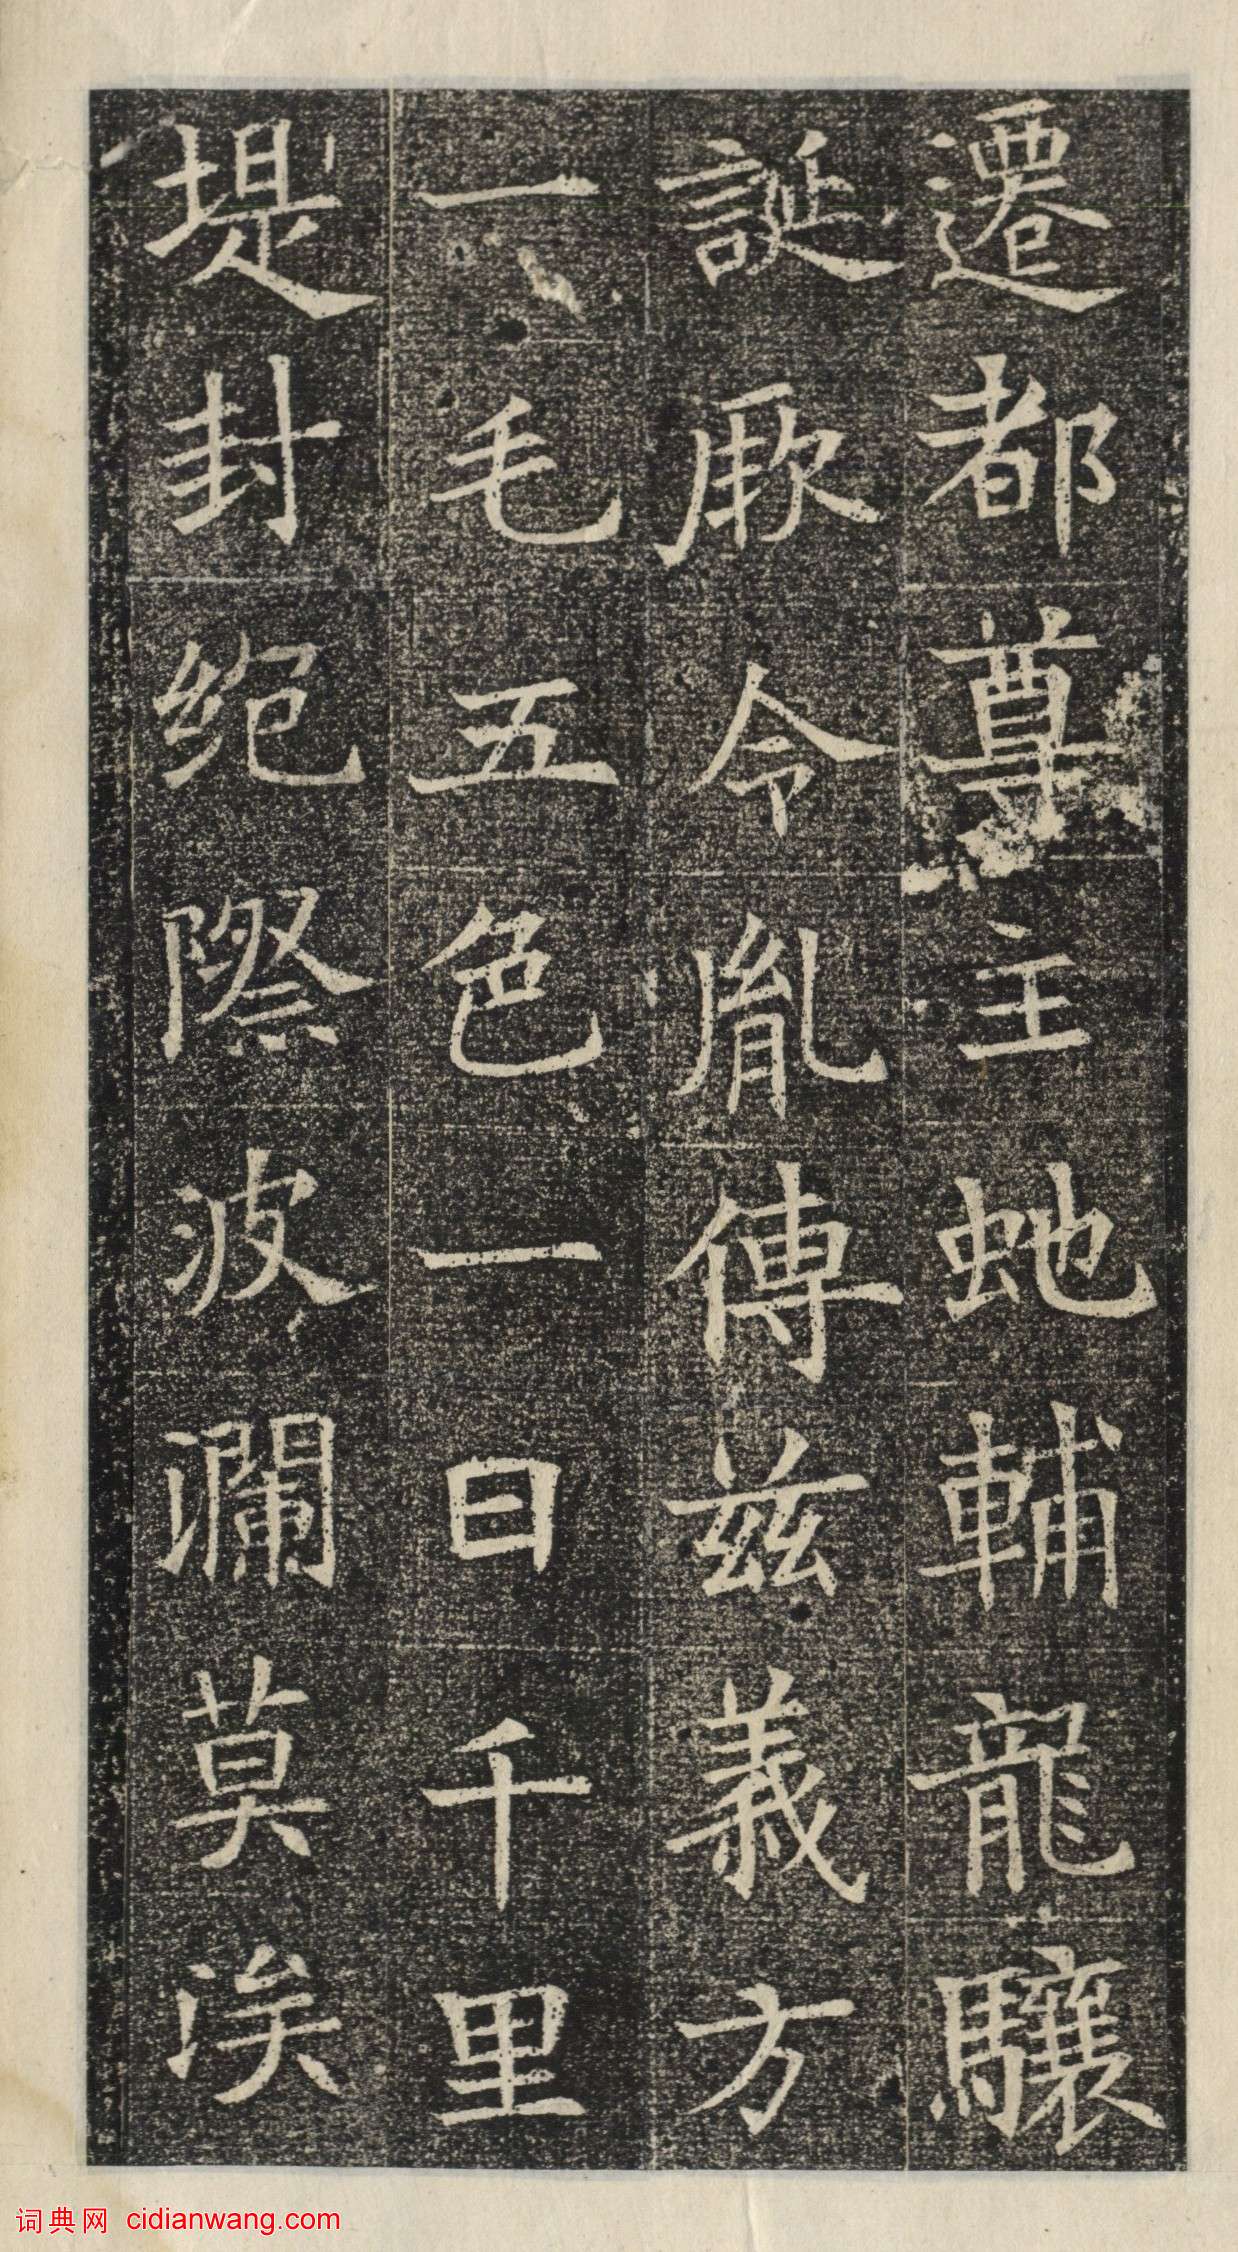 遷都尊主虵輔龍驤
誕厥令胤傳茲義方
一毛五色一日千里
堤封絕際波瀾莫涘
词典网 cidianwang.com